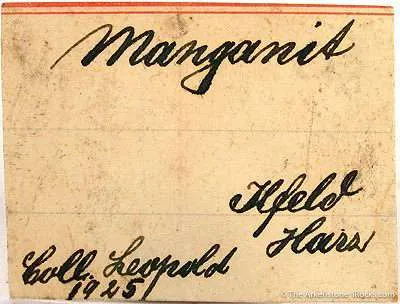 Manganit
Ilfeld
Harz
Coll. Leopold
1925
© The Arkenstone, iRocks.com